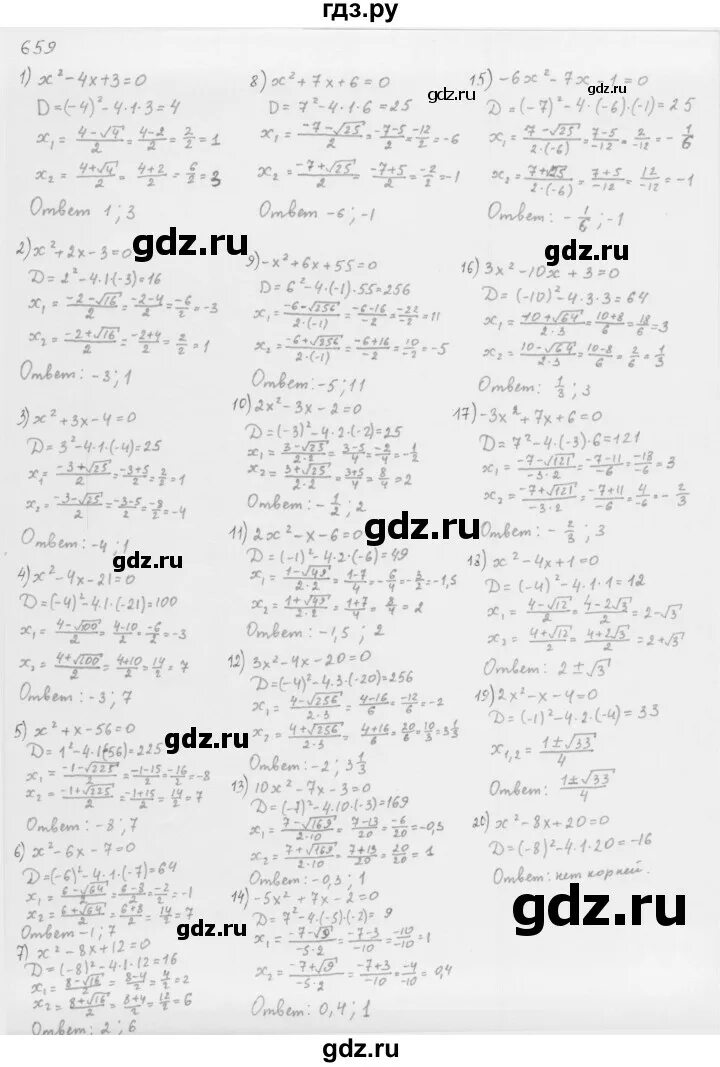 гдз.ру
659
1) x² - 4x + 3 = 0
D = (-4)² - 4·1·3 = 4
x₁ = (4-√4)/2 = (4-2)/2 = 2/2 = 1
x₂ = (4+√4)/2 = (4+2)/2 = 6/2 = 3
Ответ 1; 3
2) x² + 2x - 3 = 0
D = 2² - 4·1·(-3) = 16
x₁ = (-2-√16)/2 = (-2-4)/2 = -6/2 = -3
x₂ = (-2+√16)/2 = (-2+4)/2 = 2/2 = 1
Ответ: -3; 1
3) x² + 3x - 4 = 0
D = 3² - 4·1·(-4) = 25
x₁ = (-3+√25)/2 = (-3+5)/2 = 2/2 = 1
x₂ = (-3-√25)/2 = (-3-5)/2 = -8/2 = -4
Ответ: -4; 1
4) x² - 4x - 21 = 0
D = (-4)² - 4·1·(-21) = 100
x₁ = (4-√100)/2 = (4-10)/2 = -6/2 = -3
x₂ = (4+√100)/2 = (4+10)/2 = 14/2 = 7
Ответ: -3; 7
5) x² + x - 56 = 0
D = 1² - 4·1(-56) = 225
x₁ = (-1-√225)/2 = (-1-15)/2 = -16/2 = -8
x₂ = (-1+√225)/2 = (-1+15)/2 = 14/2 = 7
Ответ: -8; 7
6) x² - 6x - 7 = 0
D = (-6)² - 4·1·(-7) = 64
x₁ = (6-√64)/2 = (6-8)/2 = -2/2 = -1
x₂ = (6+√64)/2 = (6+8)/2 = 14/2 = 7
Ответ -1; 7
7) x² - 8x + 12 = 0
D = (-8)² - 4·1·12 = 16
x₁ = (8-√16)/2 = (8-4)/2 = 4/2 = 2
x₂ = (8+√16)/2 = (8+4)/2 = 12/2 = 6
Ответ: 2; 6
8) x² + 7x + 6 = 0
D = 7² - 4·1·6 = 25
x₁ = (-7-√25)/2 = (-7-5)/2 = -12/2 = -6
x₂ = (-7+√25)/2 = (-7+5)/2 = -2/2 = -1
Ответ -6; -1
9) -x² + 6x + 55 = 0
D = 6² - 4·(-1)·55 = 256
x₁ = (-6-√256)/(2·(-1)) = (-6-16)/-2 = -22/-2 = 11
x₂ = (-6+√256)/(2·(-1)) = (-6+16)/-2 = 10/-2 = -5
Ответ: -5; 11
10) 2x² - 3x - 2 = 0
D = (-3)² - 4·2·(-2) = 25
x₁ = (3-√25)/(2·2) = (3-5)/4 = -2/4 = -1/2
x₂ = (3+√25)/(2·2) = (3+5)/4 = 8/4 = 2
Ответ: -1/2; 2
11) 2x² - x - 6 = 0
D = (-1)² - 4·2·(-6) = 49
x₁ = (1-√49)/(2·2) = (1-7)/4 = -6/4 = -3/2 = -1,5
x₂ = (1+√49)/(2·2) = (1+7)/4 = 8/4 = 2
Ответ: -1,5; 2
12) 3x² - 4x - 20 = 0
D = (-4)² - 4·3·(-20) = 256
x₁ = (4-√256)/(2·3) = (4-16)/6 = -12/6 = -2
x₂ = (4+√256)/(2·3) = (4+16)/6 = 20/6 = 10/3 = 3 1/3
Ответ: -2; 3 1/3
13) 10x² - 7x - 3 = 0
D = (-7)² - 4·10·(-3) = 169
x₁ = (7-√169)/(2·10) = (7-13)/20 = -6/20 = -0,3
x₂ = (7+√169)/(2·10) = (7+13)/20 = 20/20 = 1
Ответ: -0,3; 1
14) -5x² + 7x - 2 = 0
D = 7² - 4·(-5)·(-2) = 9
x₁ = (-7-√9)/(-5·2) = (-7-3)/-10 = -10/-10 = 1
x₂ = (-7+√9)/(-5·2) = (-7+3)/-10 = -4/-10 = 0,4
Ответ: 0,4; 1
15) -6x² - 7x - 1 = 0
D = (-7)² - 4·(-6)·(-1) = 25
x₁ = (7-√25)/(2·(-6)) = (7-5)/-12 = 2/-12 = -1/6
x₂ = (7+√25)/(2·(-6)) = (7+5)/-12 = 12/-12 = -1
Ответ: -1/6; -1
16) 3x² - 10x + 3 = 0
D = (-10)² - 4·3·3 = 64
x₁ = (10+√64)/(2·3) = (10+8)/6 = 18/6 = 3
x₂ = (10-√64)/(2·3) = (10-8)/6 = 2/6 = 1/3
Ответ: 1/3; 3
17) -3x² + 7x + 6 = 0
D = 7² - 4·(-3)·6 = 121
x₁ = (-7-√121)/(-3·2) = (-7-11)/-6 = -18/-6 = 3
x₂ = (-7+√121)/(-3·2) = (-7+11)/-6 = 4/-6 = -2/3
Ответ: -2/3; 3
18) x² - 4x + 1 = 0
D = (-4)² - 4·1·1 = 12
x₁ = (4-√12)/2 = (4-2√3)/2 = 2-√3
x₂ = (4+√12)/2 = (4+2√3)/2 = 2+√3
Ответ: 2±√3
19) 2x² - x - 4 = 0
D = (-1)² - 4·2·(-4) = 33
x₁,₂ = (1±√33)/4
Ответ: (1±√33)/4
20) x² - 8x + 20 = 0
D = (-8)² - 4·1·20 = -16
Ответ: нет корней.
gdz.ru
gdz.ru
gdz.ru
gdz.ru
gdz.ru
gdz.ru
gdz.ru
gdz.ru
gdz.ru
gdz.ru
gdz.ru
gdz.ru
gdz.ru